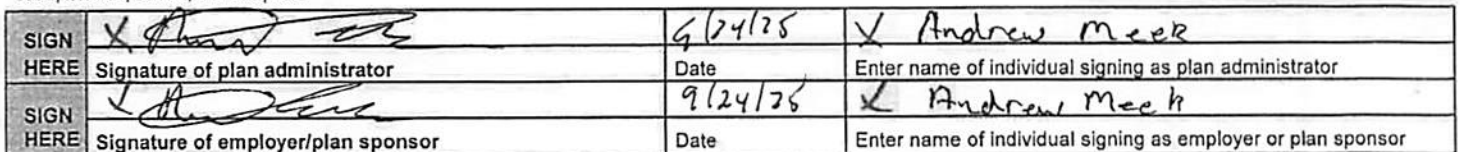 SIGN HERE X 9/24/25 X Andrew Meek
Signature of plan administrator Date Enter name of individual signing as plan administrator
SIGN HERE X 9/24/25 X Andrew Meek
Signature of employer/plan sponsor Date Enter name of individual signing as employer or plan sponsor